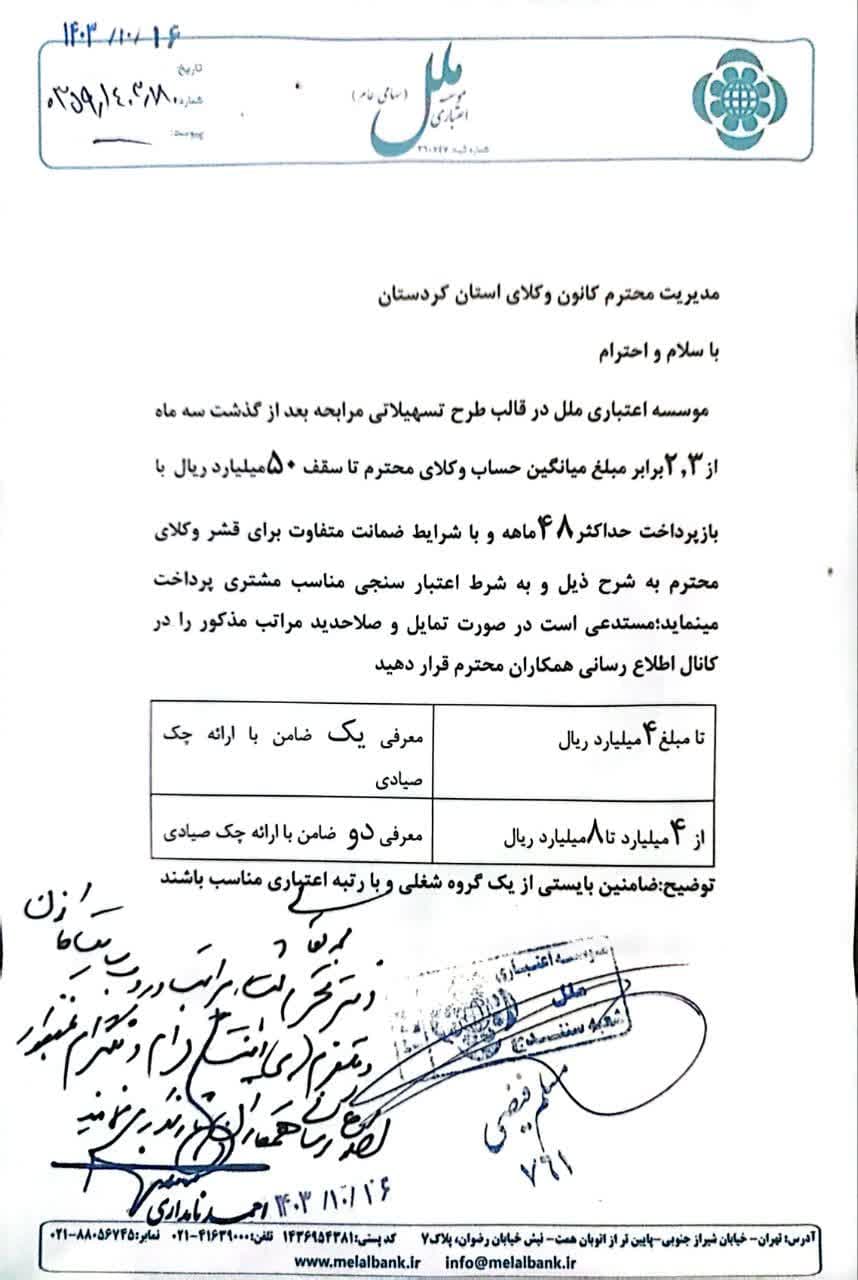 ۱۴۰۳/۱۰/۱۶
تاریخ:
شماره:
پیوست:
ملل
موسسه اعتباری
(سهامی عام)
مدیریت محترم کانون وکلای استان کردستان
با سلام و احترام
موسسه اعتباری ملل در قالب طرح تسهیلاتی مرابحه بعد از گذشت سه ماه
از ۲,۳برابر مبلغ میانگین حساب وکلای محترم تا سقف ۵۰میلیارد ریال با
بازپرداخت حداکثر۴۸ماهه و با شرایط ضمانت متفاوت برای قشر وکلای
محترم به شرح ذیل و به شرط اعتبار سنجی مناسب مشتری پرداخت
مینماید؛مستدعی است در صورت تمایل و صلاحدید مراتب مذکور را در
کانال اطلاع رسانی همکاران محترم قرار دهید
تا مبلغ۴میلیارد ریال
معرفی یک ضامن با ارائه چک
صیادی
از ۴میلیارد تا۸میلیارد ریال
معرفی دو ضامن با ارائه چک صیادی
توضیح:ضامنین بایستی از یک گروه شغلی و با رتبه اعتباری مناسب باشند
موسسه اعتباری
ملل
شعبه سنندج
۷۶۱
احمد نامداری ۱۴۰۳/۱۰/۱۶
آدرس: تهران- خیابان شیراز جنوبی-پایین تر از اتوبان همت- نبش خیابان رضوان، پلاک۷ کد پستی:۱۴۳۶۹۵۴۳۸۱ تلفن:۴۱۶۳۹۰۰۰-۰۲۱ نمابر:۸۸۰۵۶۷۴۵-۰۲۱
www.melalbank.ir info@melalbank.ir